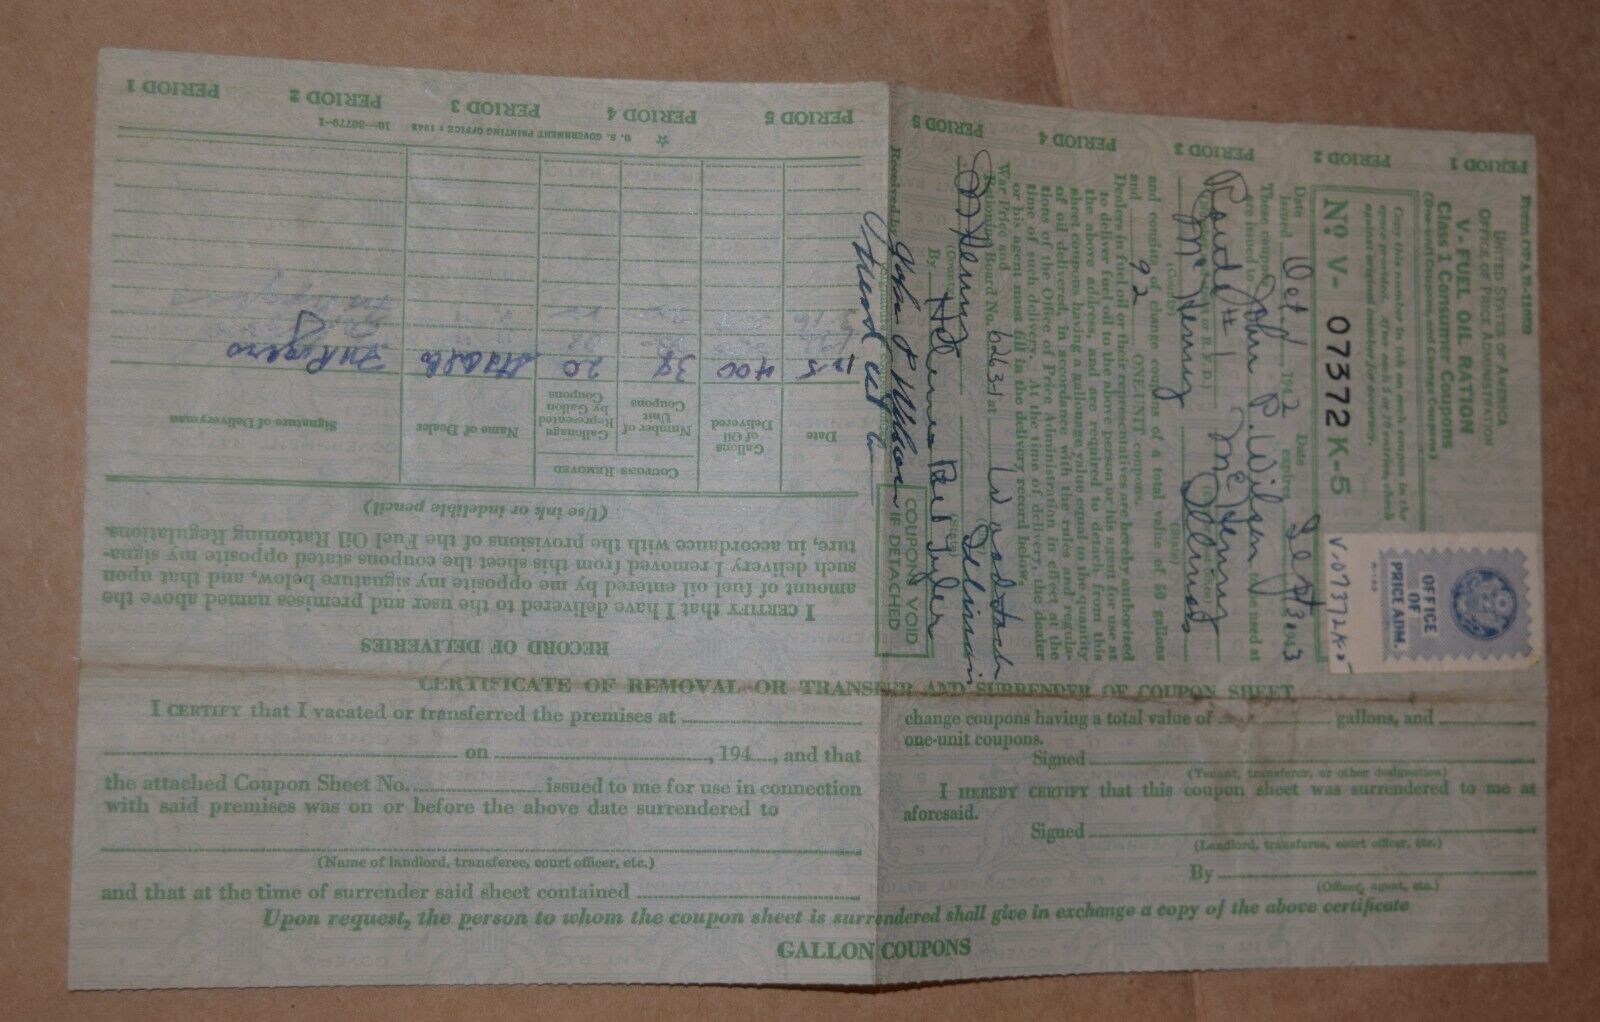 Form OPA R-1110B
UNITED STATES OF AMERICA
OFFICE OF PRICE ADMINISTRATION
V-FUEL OIL RATION
Class 1 Consumer Coupons
(One-unit Coupons, and Change Coupons)
Copy this number in ink on each coupon in the
space provided. After each 5 or 10 entries, check
against original number for accuracy.
No V- 07372K-5
OFFICE
OF
PRICE ADM.
V-07372K-5
Date Issued Oct 1942 Date expires Sept 30 1943
These coupons are issued to John P. Wilson to be used at
Route #1 McHenry
McHenry Illinois
(County) (State)
and consist of change coupons of a total value of 50 gallons
and 92 ONE-UNIT coupons.
Dealers in fuel oil or their representatives are hereby authorized
to deliver fuel oil to the above person or his agent for use at
the above address, and are required to detach from this
sheet coupons having a gallonage value equal to the quantity
of oil delivered, in accordance with the rules and regula-
tions of the Office of Price Administration in effect at the
time of such delivery. At the time of delivery, the dealer
or his agent must fill in the delivery record below.
War Price and Rationing Board No. 62631 at Woodstock
McHenry Illinois
By
Received by John P Wilson
COUPONS VOID
IF DETACHED
PERIOD 1 PERIOD 2 PERIOD 3 PERIOD 4 PERIOD 5
RECORD OF DELIVERIES
I CERTIFY that I have delivered to the user and premises named above the
amount of fuel oil entered by me opposite my signature below, and that upon
such delivery I removed from this sheet the coupons stated opposite my signa-
ture, in accordance with the provisions of the Fuel Oil Rationing Regulations.
(Use ink or indelible pencil)
Date Gallons of Oil Delivered Coupons Removed Number of Unit Coupons Gallonage Represented by Gallon Coupons Name of Dealer Signature of Deliveryman
12-5 400 38 20
U. S. GOVERNMENT PRINTING OFFICE : 1942 16—30779-1
PERIOD 5 PERIOD 4 PERIOD 3 PERIOD 2 PERIOD 1
CERTIFICATE OF REMOVAL OR TRANSFER AND SURRENDER OF COUPON SHEET
I CERTIFY that I vacated or transferred the premises at
on , 194 , and that
the attached Coupon Sheet No. issued to me for use in connection
with said premises was on or before the above date surrendered to
(Name of landlord, transferee, court officer, etc.)
and that at the time of surrender said sheet contained
change coupons having a total value of gallons, and
one-unit coupons.
Signed
(Tenant, transferor, or other designation)
I HEREBY CERTIFY that this coupon sheet was surrendered to me as
aforesaid.
Signed
(Landlord, transferee, court officer, etc.)
By
(Officer, agent, etc.)
Upon request, the person to whom the coupon sheet is surrendered shall give in exchange a copy of the above certificate
GALLON COUPONS